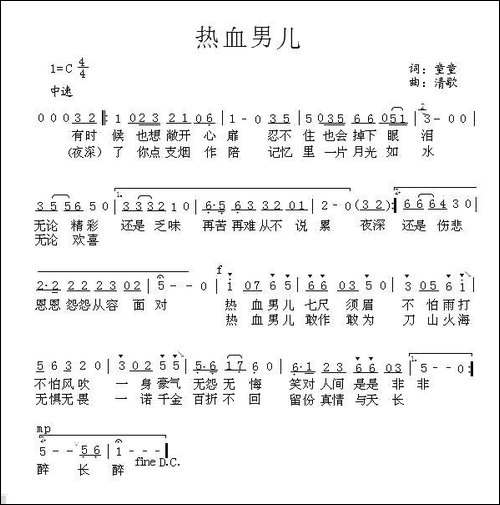 热血男儿
1=C 4/4
词：童童
曲：清歌
中速
0 0 0 3 2 1 0 2 3 2 3 2 1 0 6 1 - 0 3 5 5 0 3 5 6 6 0 5 1 3 - 0 0
有时 候 也想 敞开 心 扉 忍不 住 也会 掉下 眼 泪
(夜深) 了 你点 支烟 作 陪 记忆 里 一片 月光 如 水
3 5 5 6 5 0 3 3 3 2 1 0 6 5 6 6 3 2 0 1 2 - 0 (3 2) 6 6 6 4 3 0
无论 精彩 还是 乏味 再苦 再难 从不 说 累 夜深 还是 伤悲
无论 欢喜
2 2 2 2 2 3 0 2 5 - - 0 f i 0 7 6 5 3 0 2 1 3 3 2 1 3 0 5 6 i
恩恩 怨怨 从容 面 对 热 血 男儿 七尺 须眉 不 怕 雨打
热 血 男儿 敢作 敢为 刀 山 火海
5 6 6 5 3 2 3 0 2 5 5 5 6 1 7 6 0 6 1 2 3 6 6 0 3 5 - - 0
不怕 风吹 一 身 豪气 无怨 无 悔 笑对 人间 是是 非 非
无惧 无畏 一 诺 千金 百折 不 回 留份 真情 与天 长
mp
5 - - 5 6 1 - - -
醉 长 醉 fine D.C.